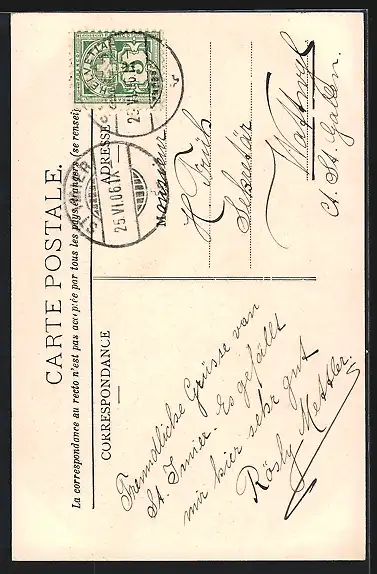 CARTE POSTALE.
La correspondance au recto n'est pas acceptée par tous les pays étrangers (se rensei
CORRESPONDANCE
ADRESSE
HELVETIA
5
25.VI.06.IX
Monsieur
H. Früh
Sekretär
Wattwyl
Ct. St. Gallen.
Freundliche Grüsse von
St. Imier. Es gefällt
mir hier sehr gut
Rösly Mettler.